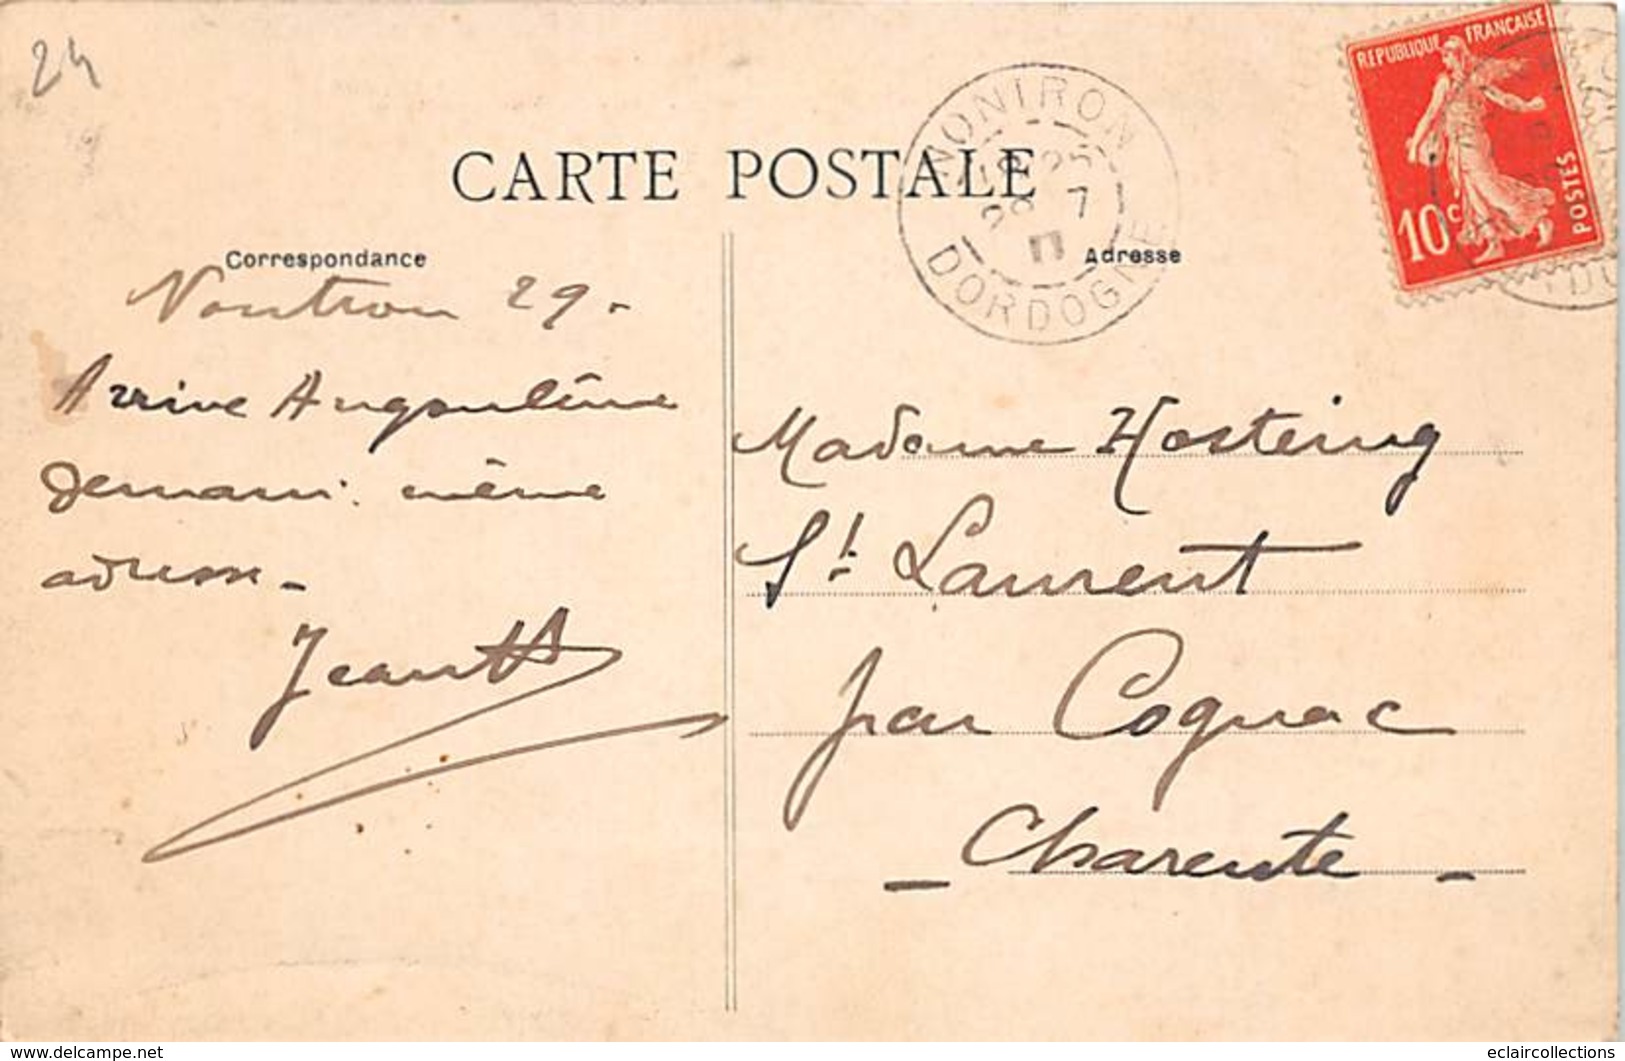 24
REPUBLIQUE FRANÇAISE
10c POSTES
NONTRON
29 7
11
DORDOGNE
CARTE POSTALE
Correspondance
Nontron 29.
Arrive Angoulême
demain même
adresse -
Adresse
Madame Hosteing
St Laurent
par Cognac
- Charente -
www.delcampe.net
eclaircollections